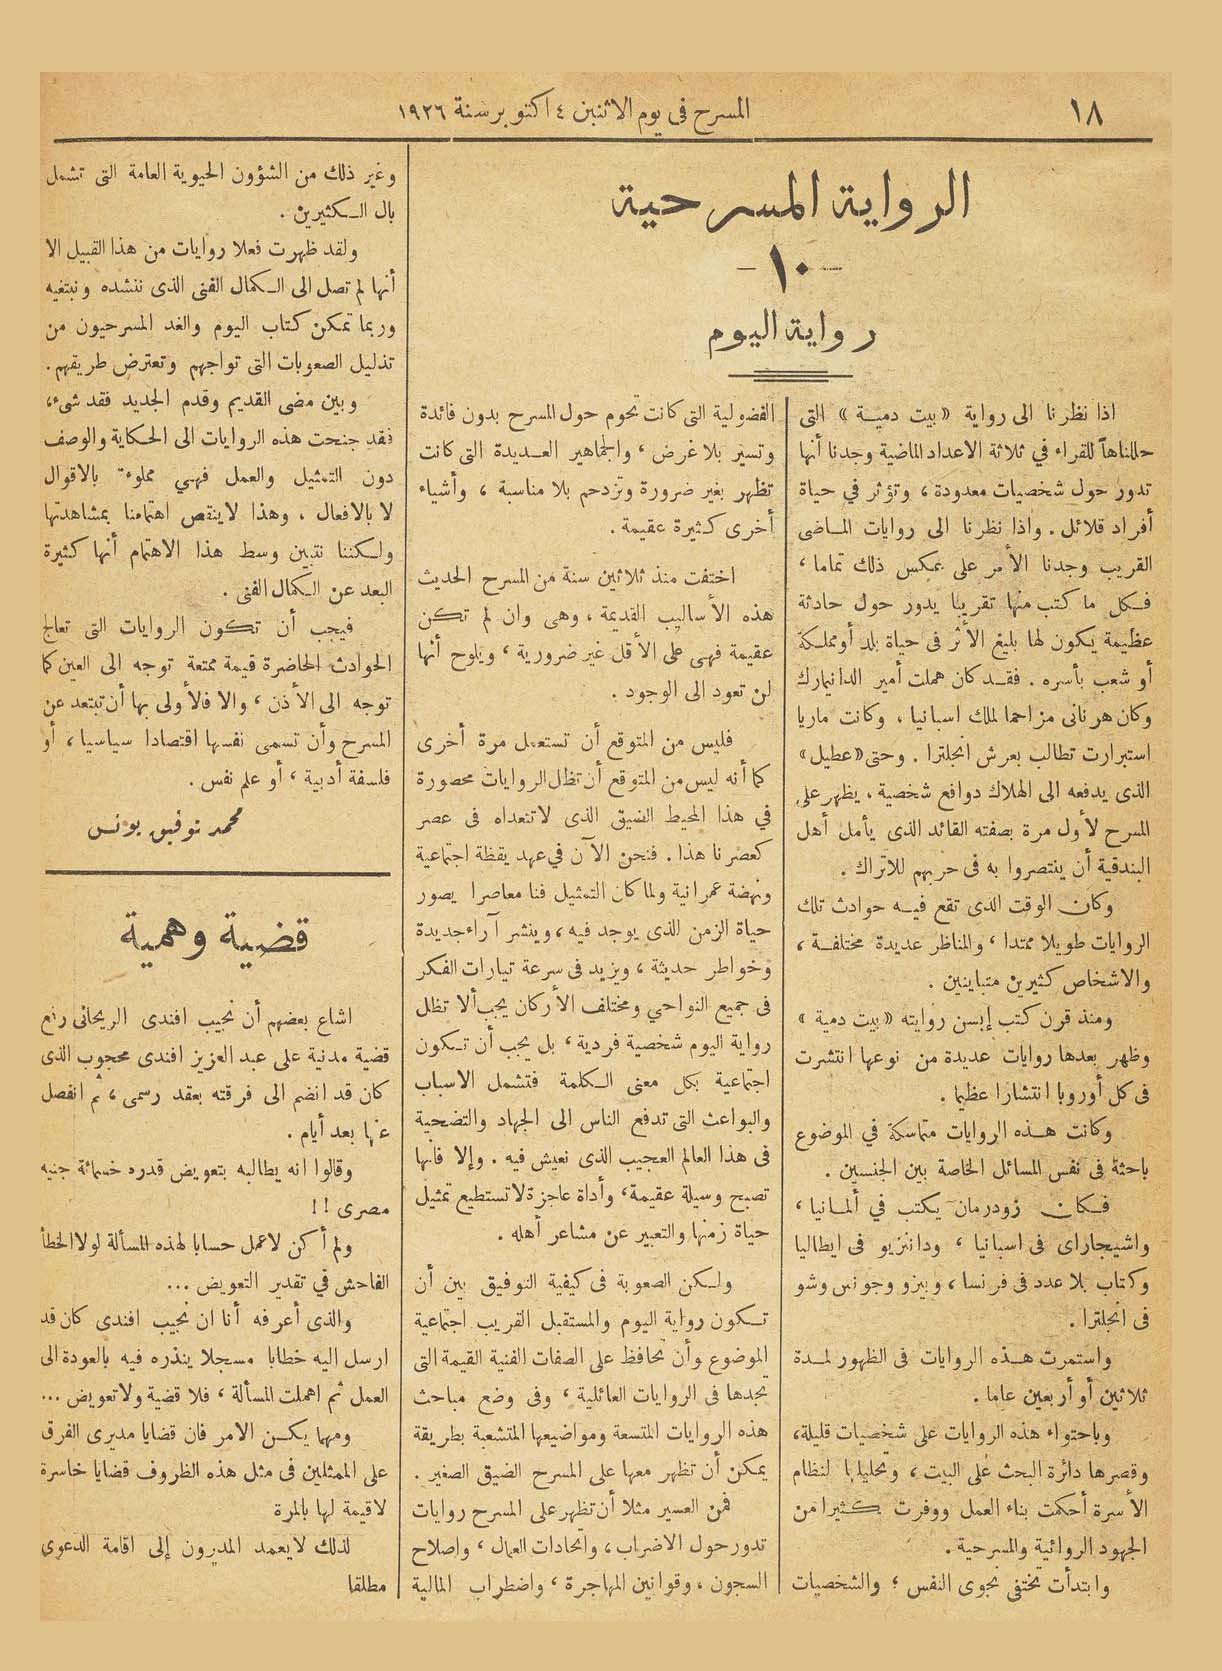 ١٨
المسرح فى يوم الاثنين ٤ اكتوبر سنة ١٩٢٦
الرواية المسرحية
— ١٠ —
رواية اليوم
اذا نظرنا الى رواية « بيت دمية » التى
حللناها للقراء في ثلاثة الاعداد الماضية وجدنا أنها
تدور حول شخصيات معدودة ، وتؤثر في حياة
أفراد قلائل . واذا نظرنا الى روايات الماضى
القريب وجدنا الأمر على عكس ذلك تماما ،
فكل ما كتب منها تقريبا يدور حول حادثة
عظيمة يكون لها بليغ الأثر فى حياة بلد أو مملكة
أو شعب بأسره . فقد كان هملت أمير الدانيمارك
وكان هرنانى مزاحما لملك اسبانيا ، وكانت ماريا
استيرارت تطالب بعرش انجلترا . وحتى « عطيل »
الذى يدفعه الى الهلاك دوافع شخصية ، يظهر على
المسرح لأول مرة بصفته القائد الذى يأمل أهل
البندقية أن ينتصروا به فى حربهم للاتراك .
وكان الوقت الذى تقع فيه حوادث تلك
الروايات طويلا ممتدا ، والمناظر عديدة مختلفة ،
والاشخاص كثيرين متباينين .
ومنذ قرن كتب إبسن روايته « بيت دمية »
وظهر بعدها روايات عديدة من نوعها انتشرت
فى كل أوروبا انتشارا عظيما .
وكانت هذه الروايات متماسكة في الموضوع
باحثة فى نفس المسائل الخاصة بين الجنسين .
فكان زودرمان يكتب في ألمانيا ،
واشيجاراى فى اسبانيا ، ودانزيو فى ايطاليا
وكتاب بلا عدد فى فرنسا ، وبيزو وجونس وشو
فى انجلترا .
واستمرت هذه الروايات فى الظهور لمدة
ثلاثين أو أربعين عاما .
وباحتواء هذه الروايات على شخصيات قليلة ،
وقصرها دائرة البحث على البيت ، وتحليلها لنظام
الأسرة أحكمت بناء العمل ووفرت كثيرا من
الجهود الروائية والمسرحية .
وابتدأت تختفى نجوى النفس ؛ والشخصيات
الفضولية التى كانت تحوم حول المسرح بدون فائدة
وتسير بلا غرض ، والجماهير العديدة التى كانت
تظهر بغير ضرورة وتزدحم بلا مناسبة ، وأشياء
أخرى كثيرة عقيمة .
اختفت منذ ثلاثين سنة من المسرح الحديث
هذه الأساليب القديمة ، وهى وان لم تكن
عقيمة فهى على الأقل غير ضرورية ، ويلوح أنها
لن تعود الى الوجود .
فليس من المتوقع أن تستعمل مرة أخرى
كما أنه ليس من المتوقع أن تظل الروايات محصورة
في هذا المحيط الضيق الذى لا تتعداه فى عصر
كعصرنا هذا . فنحن الآن في عهد يقظة اجتماعية
ونهضة عمرانية ولما كان التمثيل فنا معاصرا يصور
حياة الزمن الذى يوجد فيه ، وينشر آراء جديدة
وخواطر حديثة ، ويزيد فى سرعة تيارات الفكر
فى جميع النواحي ومختلف الأركان يجب ألا تظل
رواية اليوم شخصية فردية ، بل يجب أن تكون
اجتماعية بكل معنى الكلمة فتشمل الاسباب
والبواعث التى تدفع الناس الى الجهاد والتضحية
فى هذا العالم العجيب الذى نعيش فيه . وإلا فانها
تصبح وسيلة عقيمة ، وأداة عاجزة لا تستطيع تمثيل
حياة زمنها والتعبير عن مشاعر أهله .
ولكن الصعوبة فى كيفية التوفيق بين أن
تكون رواية اليوم والمستقبل القريب اجتماعية
الموضوع وأن تحافظ على الصفات الفنية القيمة التى
تجدها فى الروايات العائلية ، وفى وضع مباحث
هذه الروايات المتسعة ومواضيعها المتشعبة بطريقة
يمكن أن تظهر معها على المسرح الضيق الصغير .
فمن العسير مثلا أن تظهر على المسرح روايات
تدور حول الاضراب ، واتحادات العمال ، واصلاح
السجون ، وقوانين المهاجرة ، واضطراب المالية
وغير ذلك من الشؤون الحيوية العامة التى تشمل
بال الكثيرين .
ولقد ظهرت فعلا روايات من هذا القبيل الا
أنها لم تصل الى الكمال الفنى الذى ننشده ونبتغيه
وربما تمكن كتاب اليوم والغد المسرحيون من
تذليل الصعوبات التى تواجهم وتعترض طريقهم .
وبين مضى القديم وقدم الجديد فقد شىء ،
فقد جنحت هذه الروايات الى الحكاية والوصف
دون التمثيل والعمل فهي مملوءة بالاقوال
لا بالافعال ، وهذا لاينقص اهتمامنا بمشاهدتها
ولكننا نتبين وسط هذا الاهتمام أنها كثيرة
البعد عن الكمال الفنى .
فيجب أن تكون الروايات التى تعالج
الحوادث الحاضرة قيمة ممتعة توجه الى العين كما
توجه الى الأذن ، والا فالأولى بها أن تبتعد عن
المسرح وأن تسمى نفسها اقتصادا سياسيا ، أو
فلسفة أدبية ، أو علم نفس .
محمد توفيق يونس
قضية وهمية
اشاع بعضهم أن نجيب افندى الريحانى رفع
قضية مدنية على عبد العزيز افندى محجوب الذى
كان قد انضم الى فرقته بعقد رسمى ، ثم انفصل
عنها بعد أيام .
وقالوا انه يطالبه بتعويض قدره خمسائة جنيه
مصرى ! !
ولم أكن لاعمل حسابا لهذه المسألة لولا الخطأ
الفاحش في تقدير التعويض ...
والذى أعرفه أنا ان نجيب افندى كان قد
ارسل اليه خطابا مسجلا ينذره فيه بالعودة الى
العمل ثم اهملت المسألة ، فلا قضية ولا تعويض ...
ومهما يكن الامر فان قضايا مديرى الفرق
على الممثلين فى مثل هذه الظروف قضايا خاسرة
لاقيمة لها بالمرة
لذلك لايعمد المديرون إلى اقامة الدعوى
مطلقا